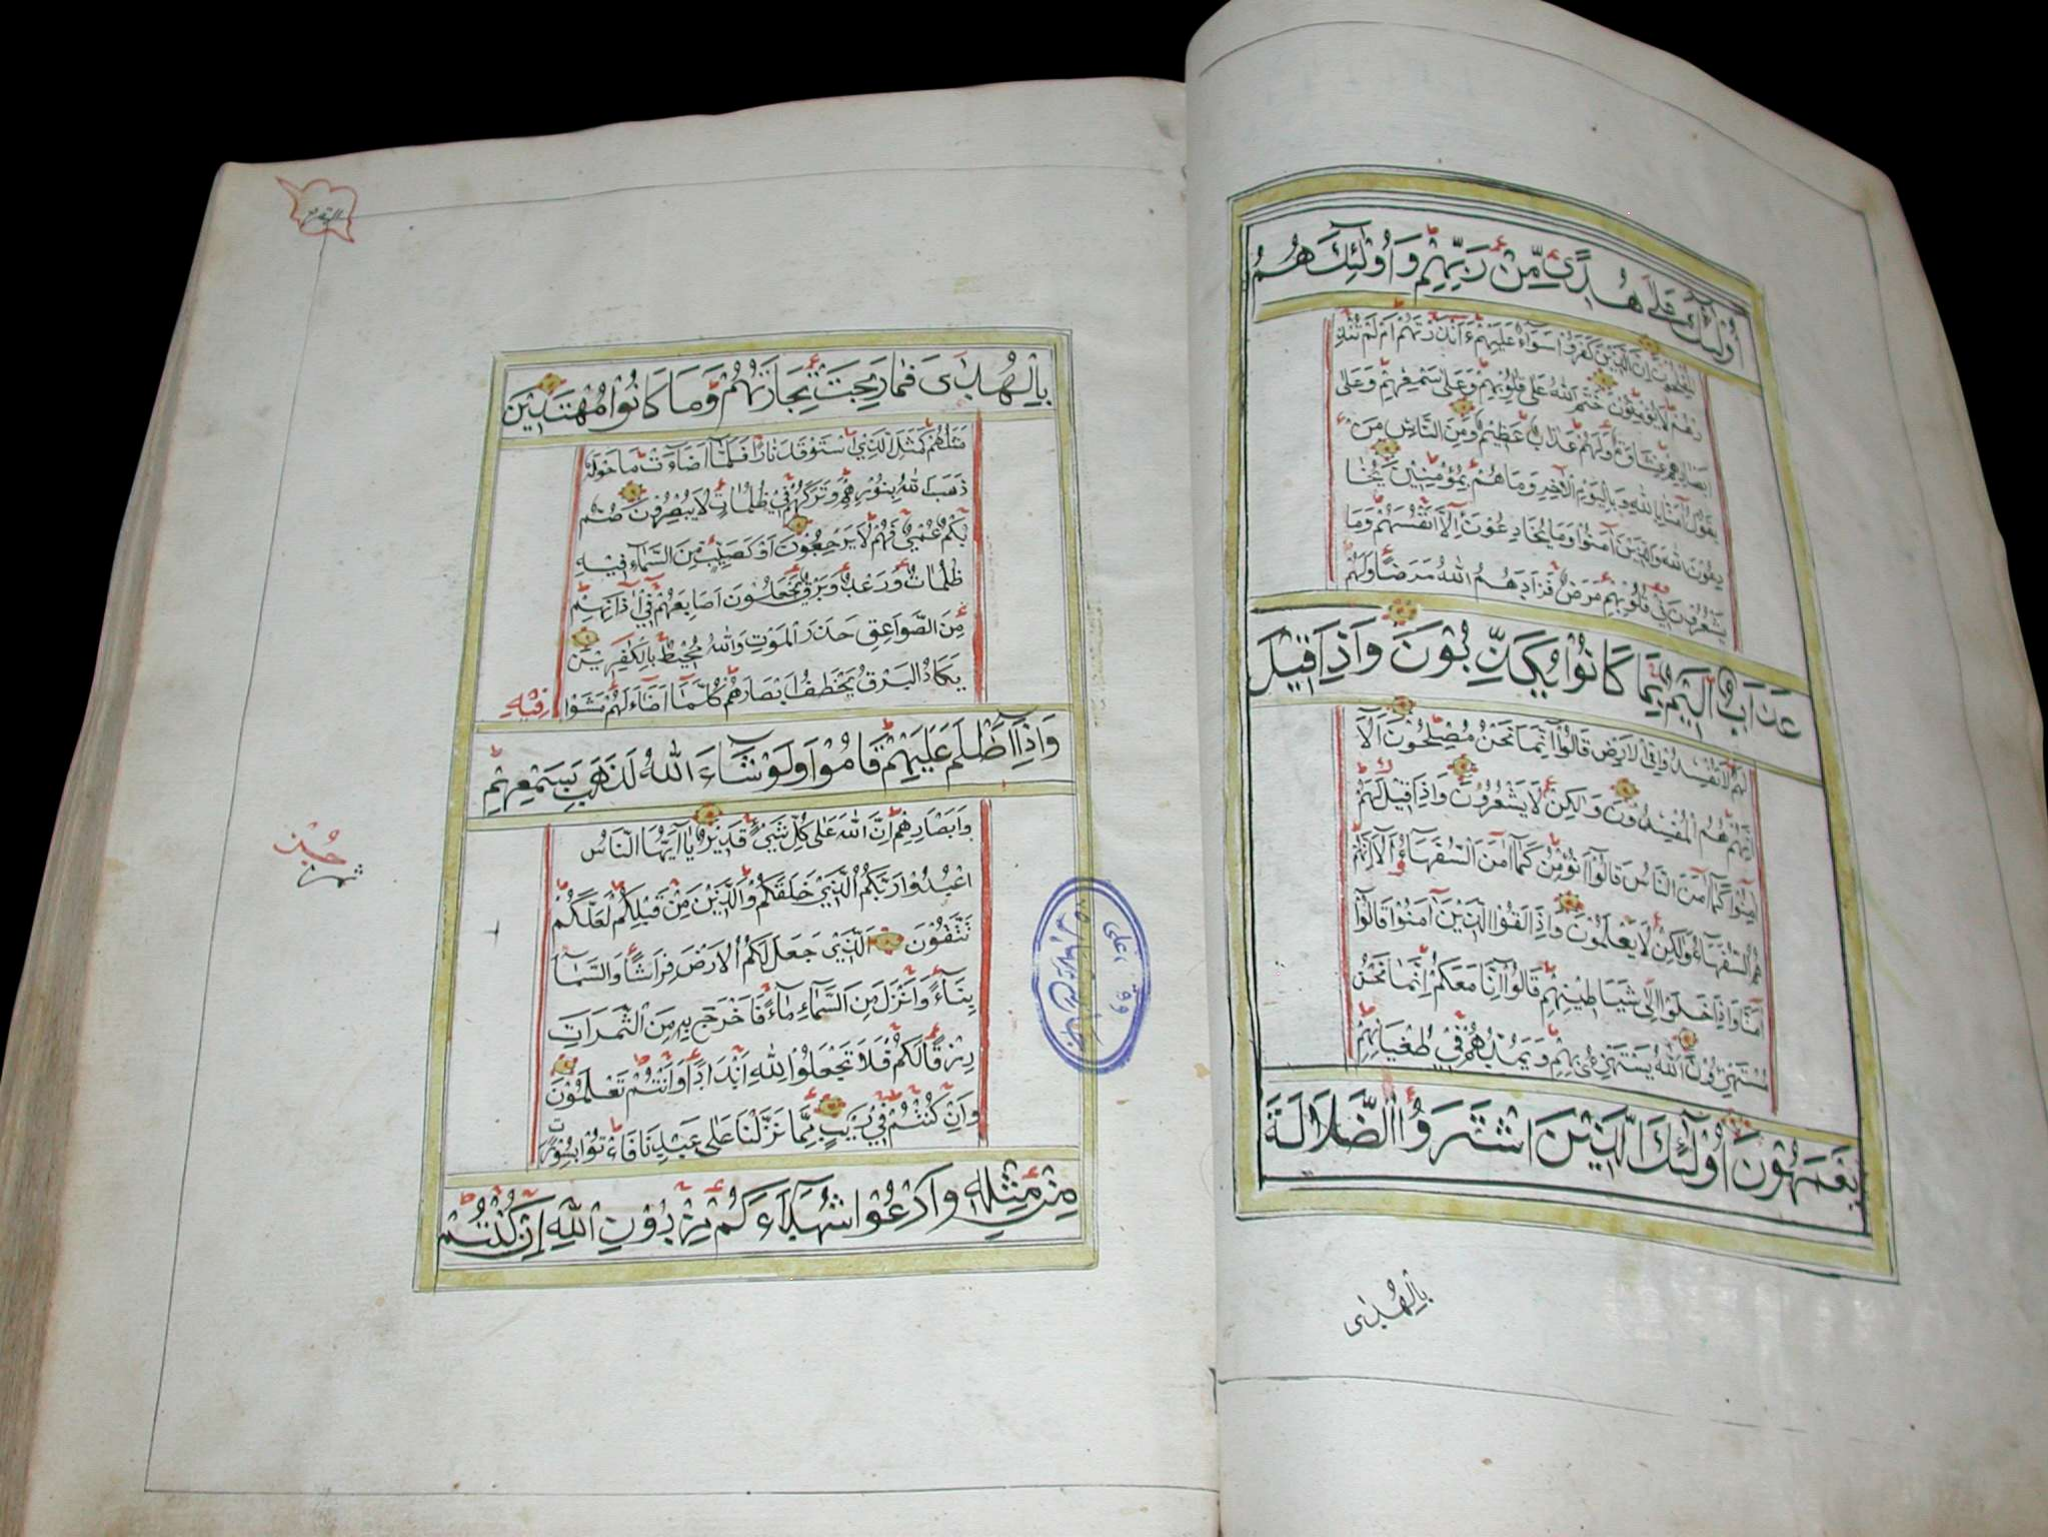 أُولَٰئِكَ عَلَىٰ هُدًى مِّنْ رَبِّهِمْ وَأُولَٰئِكَ هُمُ
الْمُفْلِحُونَ إِنَّ الَّذِينَ كَفَرُوا سَوَاءٌ عَلَيْهِمْ ءَأَنْذَرْتَهُمْ أَمْ لَمْ تُنْذِ
رْهُمْ لَا يُؤْمِنُونَ خَتَمَ اللَّهُ عَلَىٰ قُلُوبِهِمْ وَعَلَىٰ سَمْعِهِمْ وَعَلَىٰ
أَبْصَارِهِمْ غِشَاوَةٌ وَلَهُمْ عَذَابٌ عَظِيمٌ وَمِنَ النَّاسِ مَنْ
يَقُولُ آمَنَّا بِاللَّهِ وَبِالْيَوْمِ الْآخِرِ وَمَا هُمْ بِمُؤْمِنِينَ يُخَا
دِعُونَ اللَّهَ وَالَّذِينَ آمَنُوا وَمَا يُخَادِعُونَ إِلَّا أَنْفُسَهُمْ وَمَا
يَشْعُرُونَ فِي قُلُوبِهِمْ مَرَضٌ فَزَادَهُمُ اللَّهُ مَرَضًا وَلَهُمْ
عَذَابٌ أَلِيمٌ بِمَا كَانُوا يُكَذِّبُونَ وَإِذَا قِيلَ
لَهُمْ لَا تُفْسِدُوا فِي الْأَرْضِ قَالُوا إِنَّمَا نَحْنُ مُصْلِحُونَ أَلَا
إِنَّهُمْ هُمُ الْمُفْسِدُونَ وَلَٰكِنْ لَا يَشْعُرُونَ وَإِذَا قِيلَ لَهُمْ
آمِنُوا كَمَا آمَنَ النَّاسُ قَالُوا أَنُؤْمِنُ كَمَا آمَنَ السُّفَهَاءُ أَلَا إِنَّهُمْ
هُمُ السُّفَهَاءُ وَلَٰكِنْ لَا يَعْلَمُونَ وَإِذَا لَقُوا الَّذِينَ آمَنُوا قَالُوا
آمَنَّا وَإِذَا خَلَوْا إِلَىٰ شَيَاطِينِهِمْ قَالُوا إِنَّا مَعَكُمْ إِنَّمَا نَحْنُ
مُسْتَهْزِئُونَ اللَّهُ يَسْتَهْزِئُ بِهِمْ وَيَمُدُّهُمْ فِي طُغْيَانِهِمْ
يَعْمَهُونَ أُولَٰئِكَ الَّذِينَ اشْتَرَوُا الضَّلَالَةَ
بِالْهُدَىٰ
بِالْهُدَىٰ فَمَا رَبِحَتْ تِجَارَتُهُمْ وَمَا كَانُوا مُهْتَدِينَ
مَثَلُهُمْ كَمَثَلِ الَّذِي اسْتَوْقَدَ نَارًا فَلَمَّا أَضَاءَتْ مَا حَوْلَهُ
ذَهَبَ اللَّهُ بِنُورِهِمْ وَتَرَكَهُمْ فِي ظُلُمَاتٍ لَا يُبْصِرُونَ صُمٌّ
بُكْمٌ عُمْيٌ فَهُمْ لَا يَرْجِعُونَ أَوْ كَصَيِّبٍ مِنَ السَّمَاءِ فِيهِ
ظُلُمَاتٌ وَرَعْدٌ وَبَرْقٌ يَجْعَلُونَ أَصَابِعَهُمْ فِي آذَانِهِمْ
مِنَ الصَّوَاعِقِ حَذَرَ الْمَوْتِ وَاللَّهُ مُحِيطٌ بِالْكَٰفِرِينَ
يَكَادُ الْبَرْقُ يَخْطَفُ أَبْصَارَهُمْ كُلَّمَا أَضَاءَ لَهُمْ مَشَوْا فِيهِ
وَإِذَا أَظْلَمَ عَلَيْهِمْ قَامُوا وَلَوْ شَاءَ اللَّهُ لَذَهَبَ بِسَمْعِهِمْ
وَأَبْصَارِهِمْ إِنَّ اللَّهَ عَلَىٰ كُلِّ شَيْءٍ قَدِيرٌ يَا أَيُّهَا النَّاسُ
اعْبُدُوا رَبَّكُمُ الَّذِي خَلَقَكُمْ وَالَّذِينَ مِنْ قَبْلِكُمْ لَعَلَّكُمْ
تَتَّقُونَ الَّذِي جَعَلَ لَكُمُ الْأَرْضَ فِرَاشًا وَالسَّمَاءَ
بِنَاءً وَأَنْزَلَ مِنَ السَّمَاءِ مَاءً فَأَخْرَجَ بِهِ مِنَ الثَّمَرَاتِ
رِزْقًا لَكُمْ فَلَا تَجْعَلُوا لِلَّهِ أَنْدَادًا وَأَنْتُمْ تَعْلَمُونَ
وَإِنْ كُنْتُمْ فِي رَيْبٍ مِمَّا نَزَّلْنَا عَلَىٰ عَبْدِنَا فَأْتُوا بِسُورَةٍ
مِنْ مِثْلِهِ وَادْعُوا شُهَدَاءَكُمْ مِنْ دُونِ اللَّهِ إِنْ كُنْتُمْ